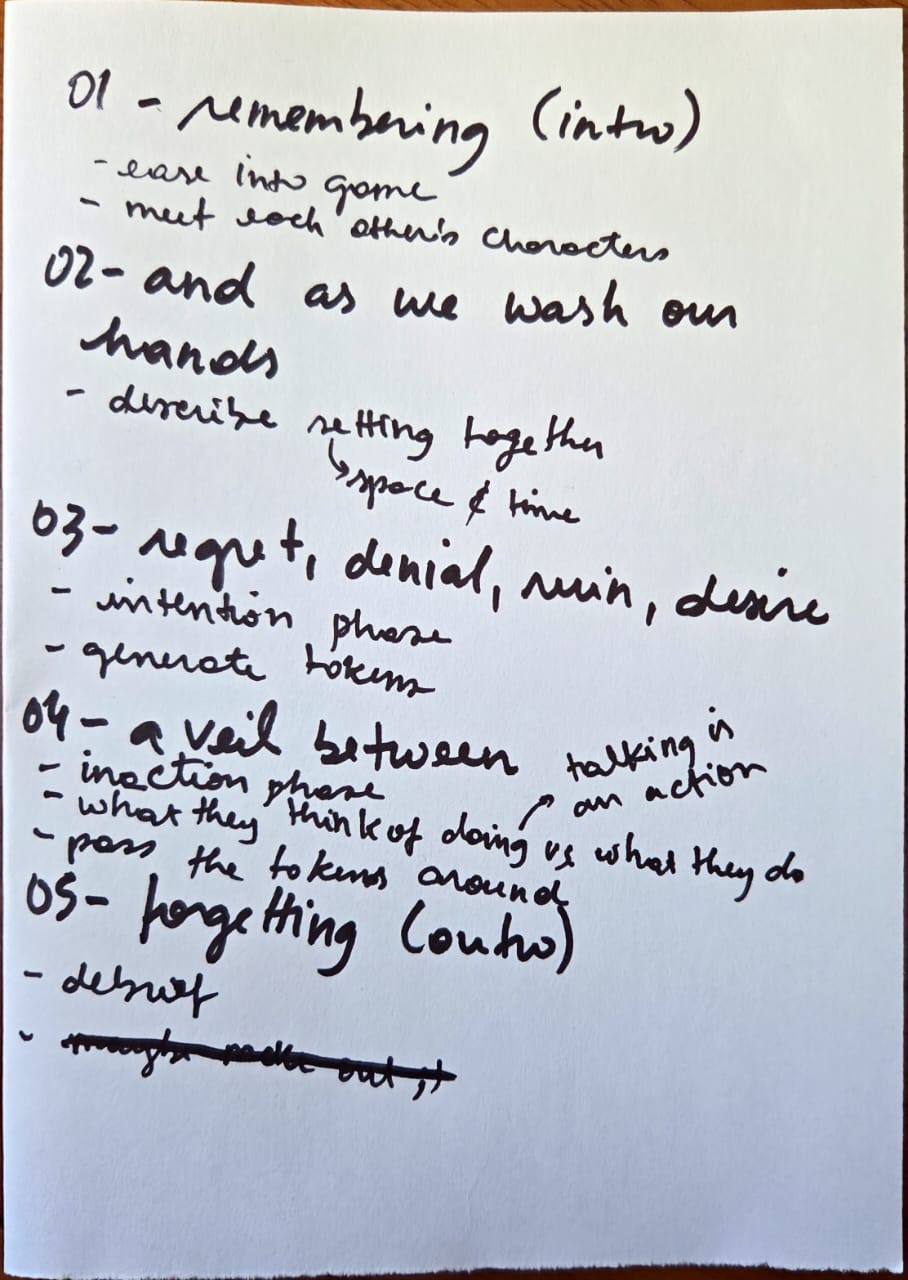 01 - remembering (intro)
- ease into game
- meet each other's characters
02- and as we wash our
hands
- describe setting together
↳ space & time
03- regret, denial, ruin, desire
- intention phase
- generate tokens
04- a veil between
talking is
an action
- inaction phase
- what they think of doing vs what they do
- pass the tokens around
05- forgetting (outro)
- debrief
- maybe out ;)